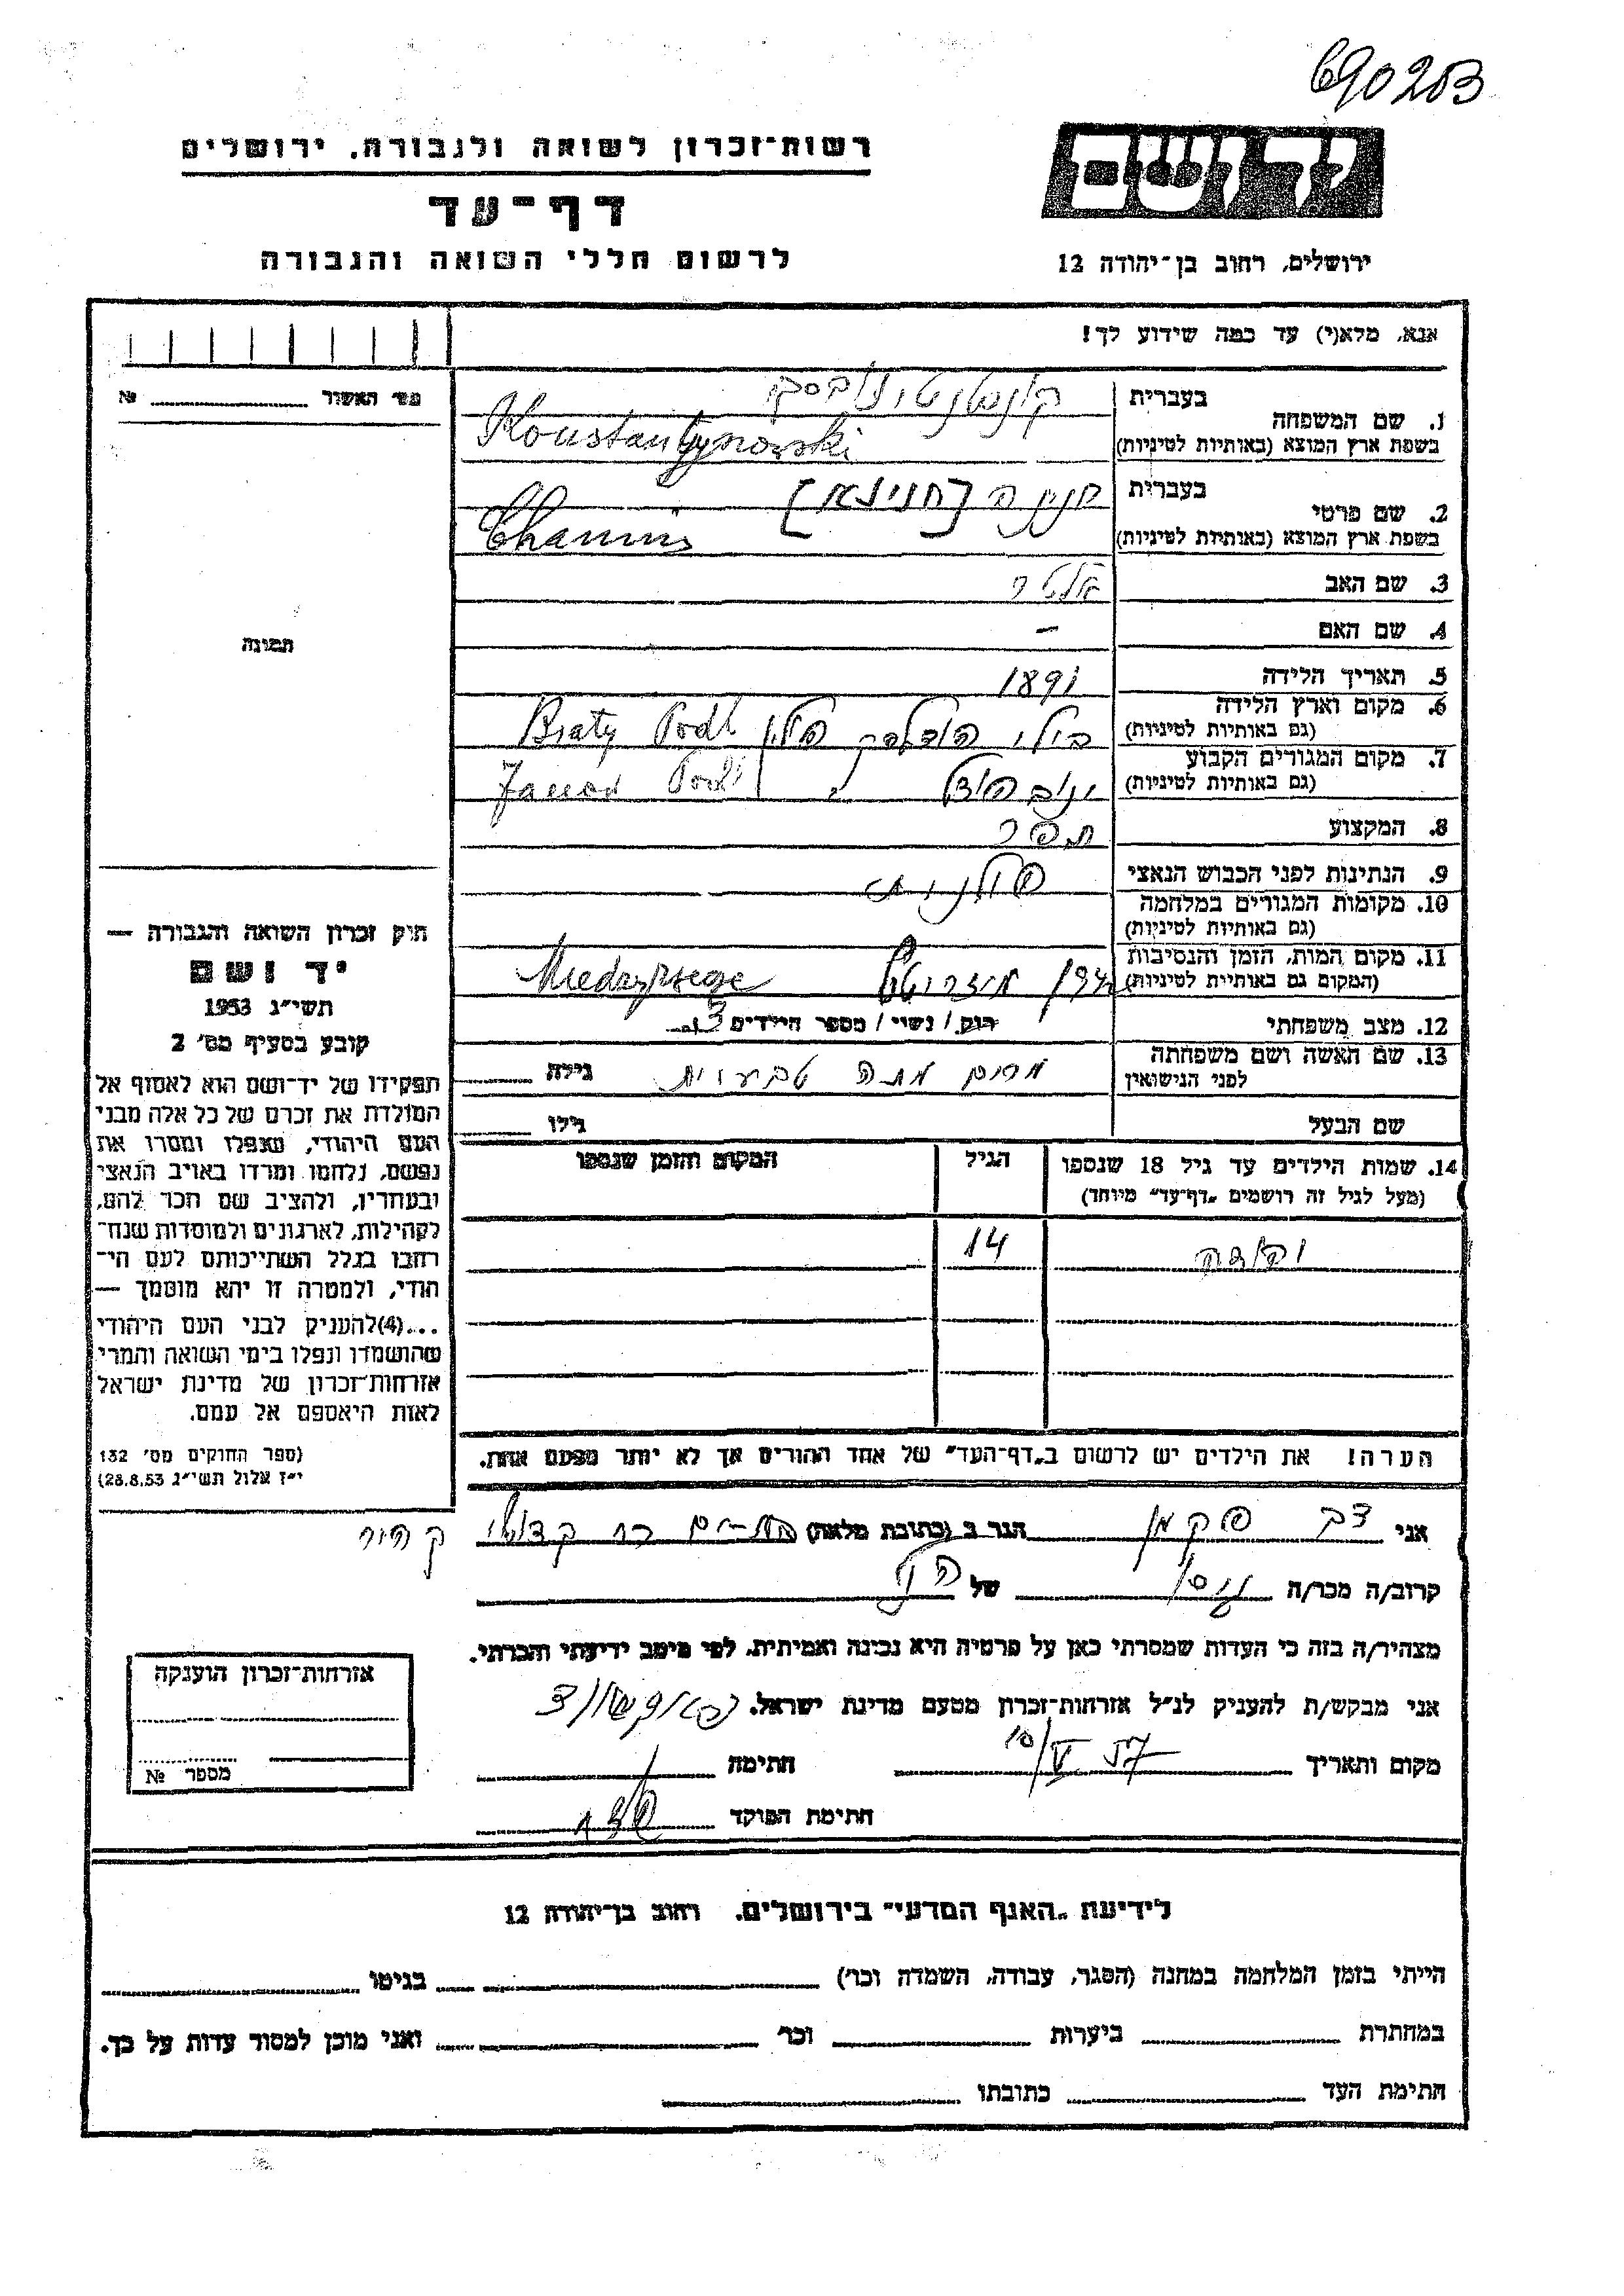 690203
רשות־זכרון לשואה ולגבורה. ירושלים
יד ושם
דף־עד
לרשום חללי השואה והגבורה
ירושלים, רחוב בן־יהודה 12
אנא, מלא(י) עד כמה שידוע לך!
מס׳ האשור № 
בעברית
קונסטנטינובסקי
1. שם המשפחה
בשפת ארץ המוצא (באותיות לטיניות)
Konstantynowski
בעברית
[חנינא]
2. שם פרטי
בשפת ארץ המוצא (באותיות לטיניות)
3. שם האב
4. שם האם
-
5. תאריך הלידה
1891
6. מקום וארץ הלידה
(גם באותיות לטיניות)
פולין Podl
7. מקום המגורים הקבוע
(גם באותיות לטיניות)
ינוב פודל " Janow Podl
8. המקצוע
תפר
9. הנתינות לפני הכבוש הנאצי
פולנית
10. מקומות המגורים במלחמה
(גם באותיות לטיניות)
11. מקום המות, הזמן והנסיבות
(המקום גם באותיית לטיניות)
12. מצב משפחתי
רוק / נשוי / מספר הילדים 3
13. שם האשה ושם משפחתה
לפני הנישואין
מרים טבעות גילה
שם הבעל גילו
14. שמות הילדים עד גיל 18 שנספו
(מעל לגיל זה רושמים „דף־עד״ מיוחד)
הגיל
המקום והזמן שנספו
14
הערה! את הילדים יש לרשום ב„דף־העד״ של אחד ההורים אך לא יותר מפעם אחת.
תמונה
חוק זכרון השואה והגבורה —
יד ושם
תשי״ג 1953
קובע בסעיף מס׳ 2
תפקידו של יד־ושם הוא לאסוף אל
המולדת את זכרם של כל אלה מבני
העם היהודי, שנפלו ומסרו את
נפשם, נלחמו ומרדו באויב הנאצי
ובעוזריו, ולהציב שם וזכר להם,
לקהילות, לארגונים ולמוסדות שנח־
רבו בגלל השתייכותם לעם הי־
הודי, ולמטרה זו יהא מוסמך —
...(4)להעניק לבני העם היהודי
שהושמדו ונפלו בימי השואה והמרי
אזרחות־זכרון של מדינת ישראל
לאות היאספם אל עמם.
(ספר החוקים מס׳ 132
י״ז אלול תשי״ג 28.8.53)
אני צבי פקמן הגר ב (כתובת מלאה)
קרוב/ה מכר/ה גיסו של הנ"ל
מצהיר/ה בזה כי העדות שמסרתי כאן על פרטיה היא נכונה ואמיתית, לפי מיטב ידיעתי והכרתי.
אני מבקש/ת להעניק לנ״ל אזרחות־זכרון מטעם מדינת ישראל.
מקום ותאריך 10/V 57 חתימה
חתימת הפוקד
אזרחות־זכרון הוענקה
מספר №
לידיעת „האגף המדעי״ בירושלים. רחוב בן־יהודה 12
הייתי בזמן המלחמה במחנה (הסגר, עבודה, השמדה וכו׳) בגיטו
במחתרת ביערות וכו׳ ואני מוכן למסור עדות על כך.
חתימת העד כתובתו